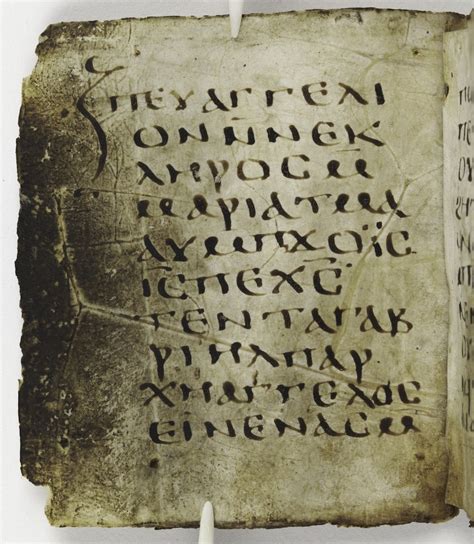 ⲡⲉⲩⲁⲅⲅⲉⲗⲓ
ⲟⲛⲛ̅ⲛⲉⲕ
ⲗⲏⲣⲟⲥⲙ̅
ⲙⲁⲣⲓⲁⲧⲙⲁ
ⲁⲩⲙⲡϫⲟⲓ̈ⲥ
ⲓ̅ⲥ̅ⲡⲉⲭ̅ⲥ̅
ⲧⲉⲛⲧⲁⲅⲁⲃ
ⲣⲓⲏⲗⲡⲁⲣ
ⲭⲏⲁⲅⲅⲉⲗⲟⲥ
ⲉⲓⲛⲉⲛⲁⲥⲙ